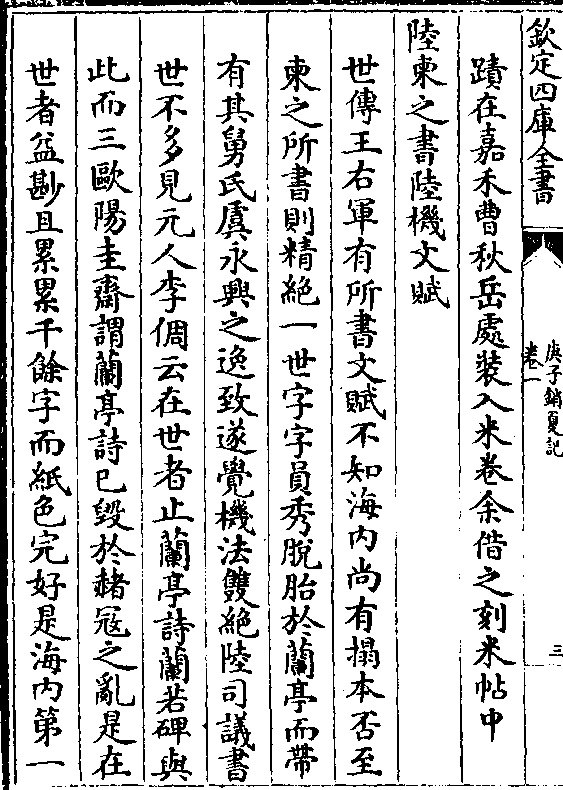 欽定四庫全書
庚子銷夏記
卷一
三
蹟在嘉禾曹秋岳處裝入米卷余借之刻米帖中
陸柬之書陸機文賦
世傳王右軍有所書文賦不知海内尚有搨本否至
柬之所書則精絶一世字字員秀脫胎於蘭亭而帶
有其舅氏虞永興之逸致遂覺機法雙絶陸司議書
世不多見元人李倜云在世者止蘭亭詩蘭若碑與
此而三歐陽圭齋謂蘭亭詩已毀於赭寇之亂是在
世者益尠且累累千餘字而紙色完好是海内第一